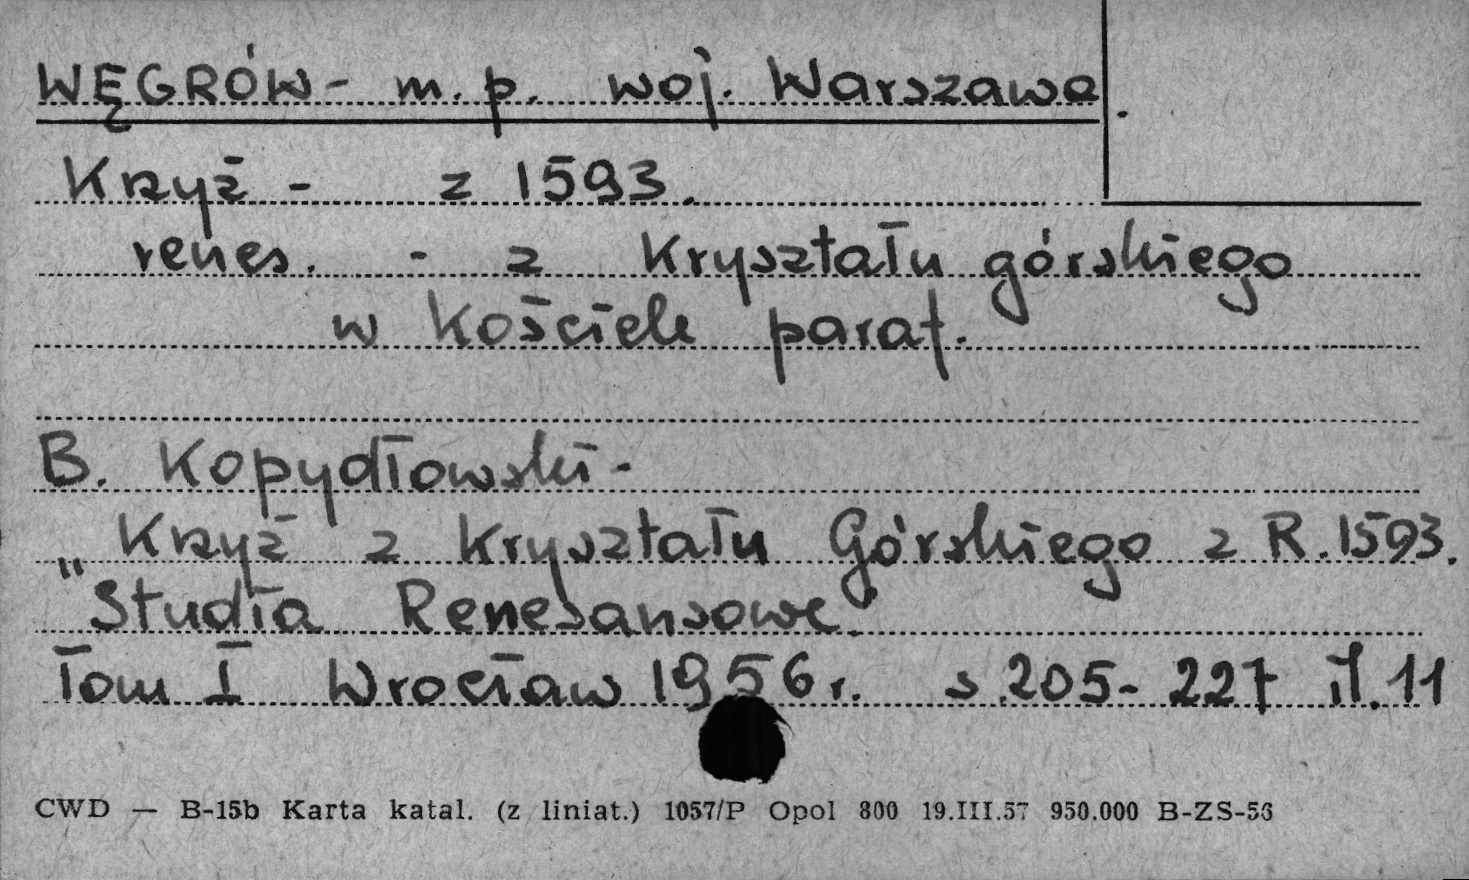 WĘGRÓW - m. p. woj. Warszawa.
Krzyż - z 1593.
renes. - z Kryształu górskiego
w Kościele paraf.
B. Kopydłowski -
Krzyż z Kryształu Górskiego z R. 1593.
"Studia Renesansowe"
Tom I Wrocław 1956 r. s. 205-227 il. 11
CWD — B-15b Karta katal. (z liniat.) 1057/P Opol 800 19.III.57 950.000 B-ZS-56